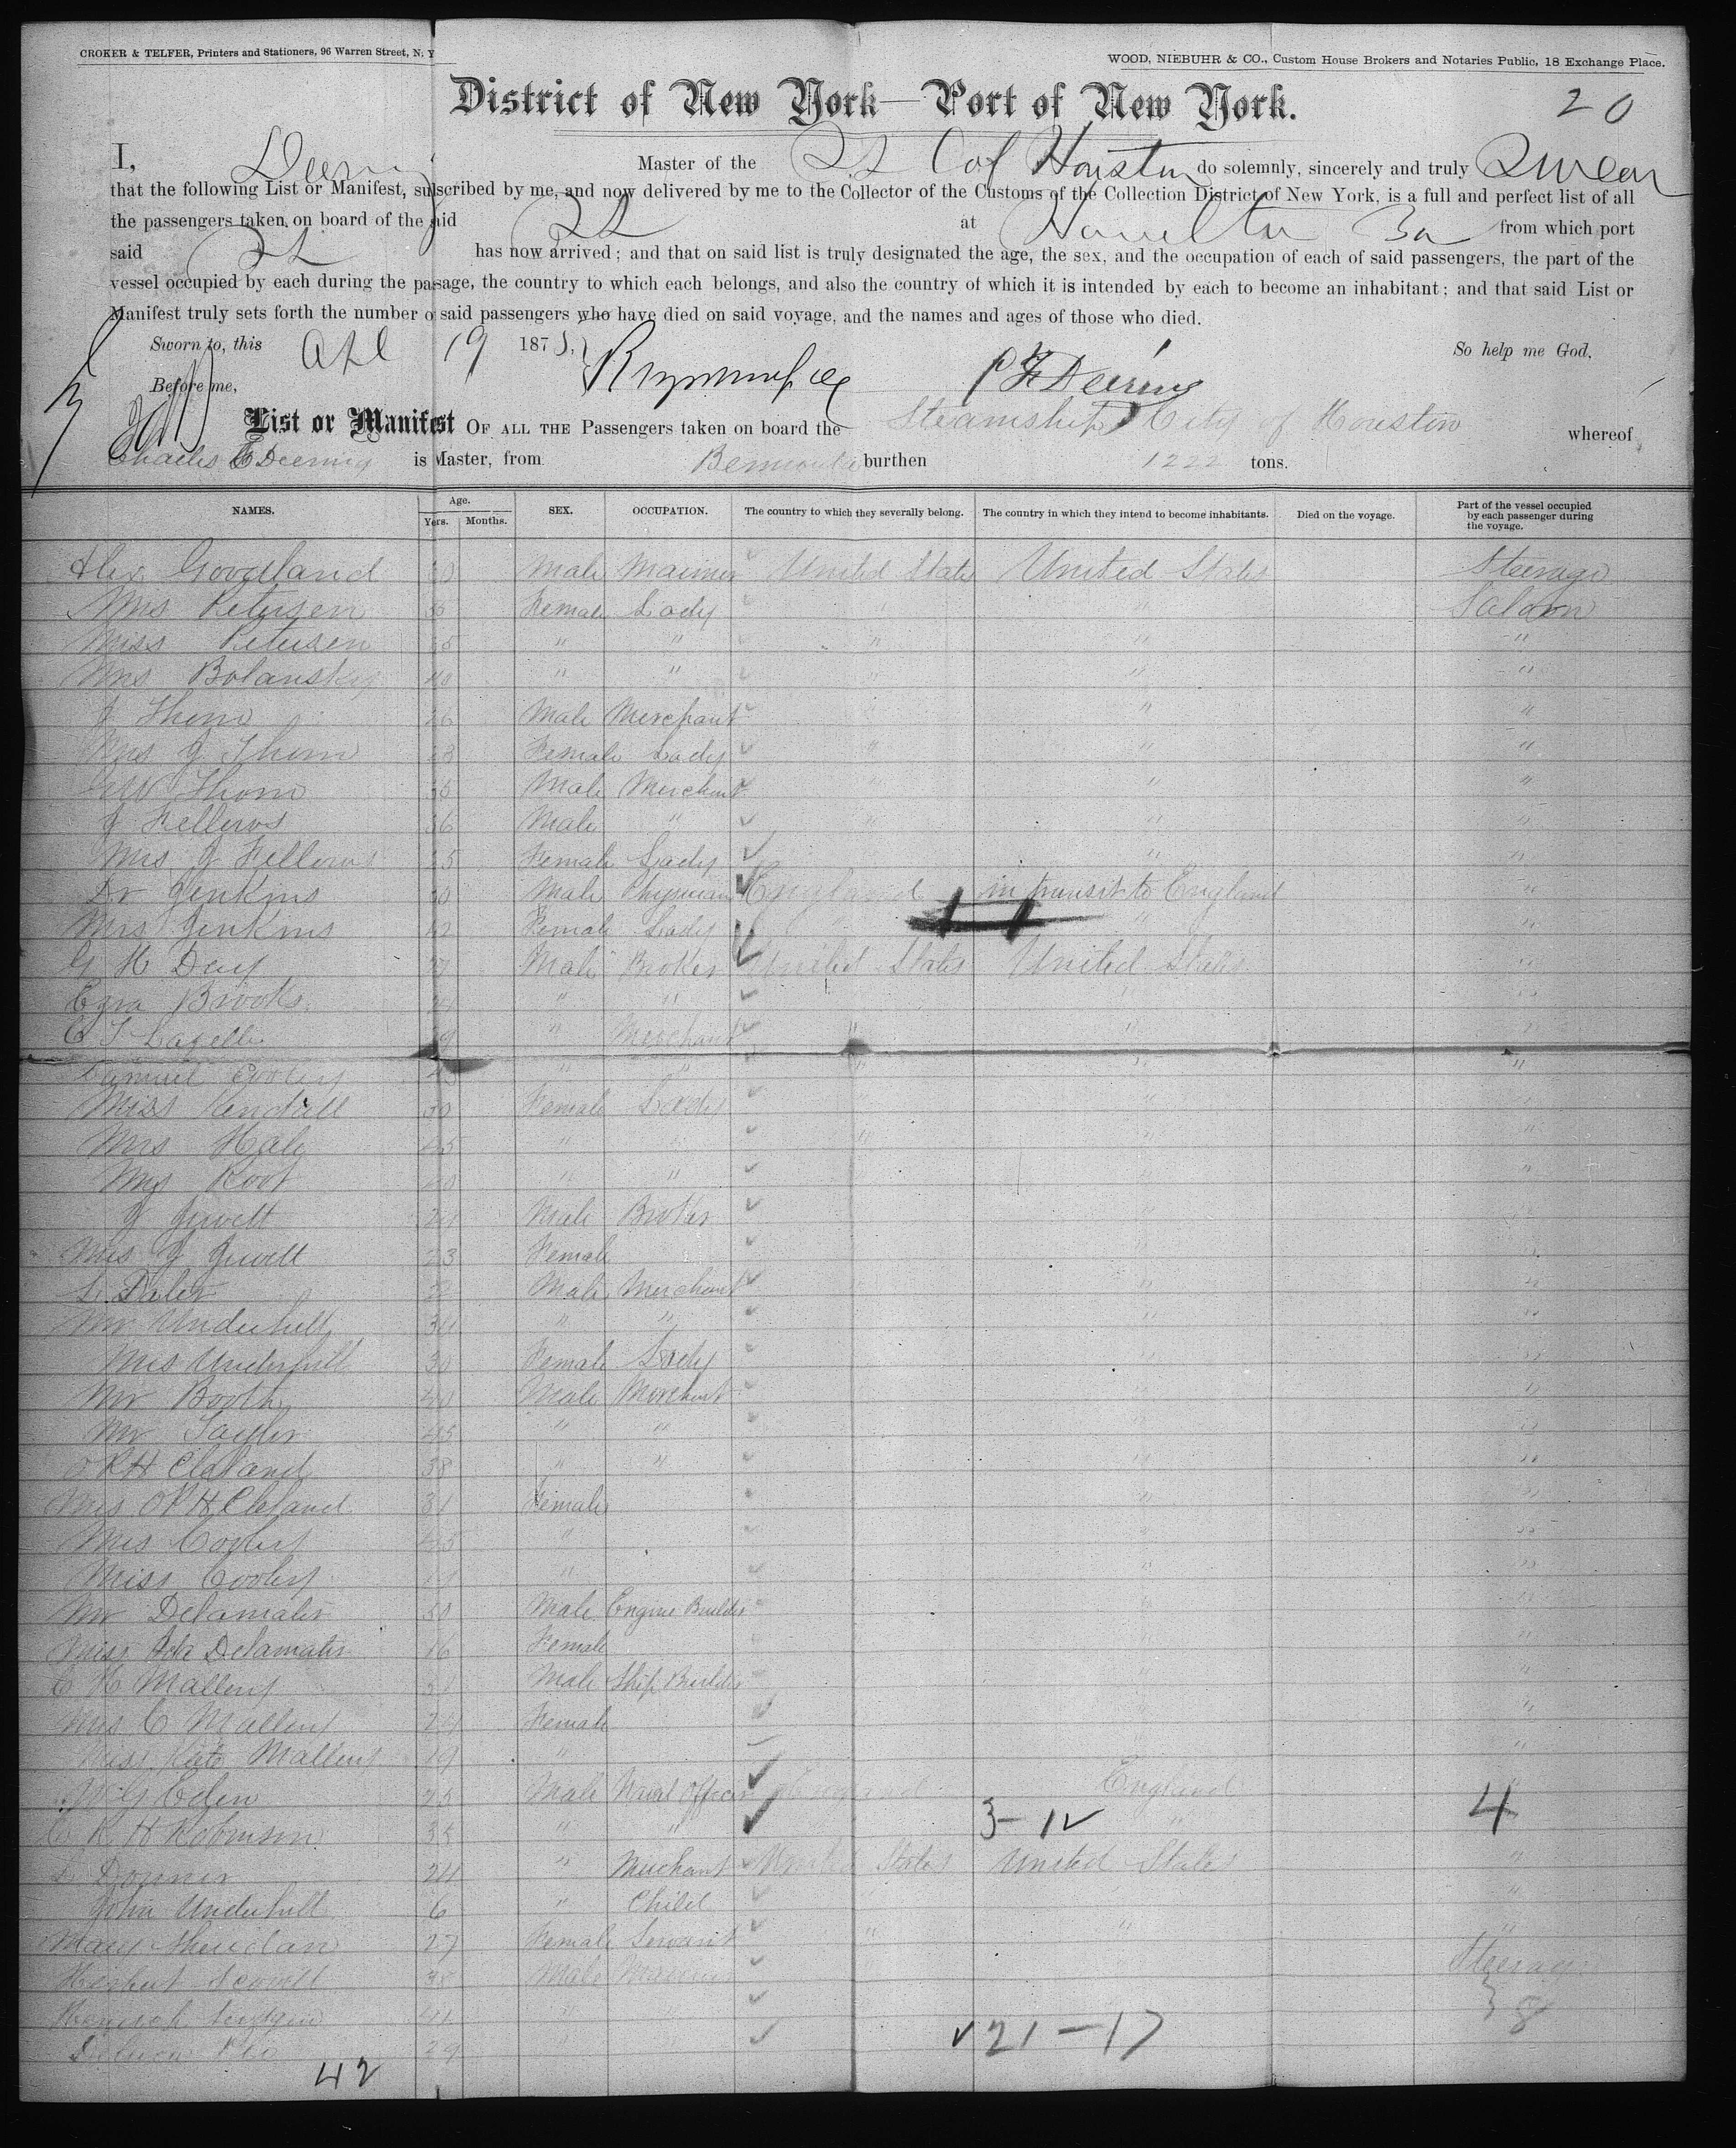 CROKER & TELFER, Printers and Stationers, 96 Warren Street, N. Y
WOOD, NIEBUHR & CO., Custom House Brokers and Notaries Public, 18 Exchange Place.
District of New York—Port of New York.
20
I, Deering Master of the SS City of Houston do solemnly, sincerely and truly Swear
that the following List or Manifest, subscribed by me, and now delivered by me to the Collector of the Customs of the Collection District of New York, is a full and perfect list of all
the passengers taken on board of the said SS at Hamilton Ba from which port
said SS has now arrived; and that on said list is truly designated the age, the sex, and the occupation of each of said passengers, the part of the
vessel occupied by each during the passage, the country to which each belongs, and also the country of which it is intended by each to become an inhabitant; and that said List or
Manifest truly sets forth the number of said passengers who have died on said voyage, and the names and ages of those who died.
Sworn to, this Apl 19 1875, So help me God,
Before me, Deering
List or Manifest OF ALL THE Passengers taken on board the Steamship City of Houston whereof
Charles Deering is Master, from Bermuda burthen 1222 tons.
NAMES. Age. Yers. Months. SEX. OCCUPATION. The country to which they severally belong. The country in which they intend to become inhabitants. Died on the voyage. Part of the vessel occupied by each passenger during the voyage.
Alex Goodland Male Mariner United States United States Steerage
Mrs Petersen Female Lady " " Saloon
Miss Petersen " " " " "
Mrs Bolansky 40 " " " " "
J Thom 26 Male Merchant " "
Mrs J Thom 23 Female Lady " " "
Thom Male Merchant " " "
J Fellows 36 Male " " " "
Mrs J Fellows 25 Female Lady " "
Dr Jenkins Male Physician England in transit to England "
Mrs Jenkins 42 Female Lady " " "
G H Day Male Broker United States United States "
Ezra Brooks " " " "
C T Lazelle " Merchant " " "
Samuel Cooley " " " " "
Miss Kendall 30 Female Lady " " "
Mrs Hale 45 " " "
Root " " " "
J Jewett 24 Male Broker
Mrs J Jewett 23 Female
Male Merchant " "
Mr Underhill 34 " " " "
Mrs Underhill 30 Female Lady " "
Mr Booth 40 Male Merchant " "
Mr Taylor 45 " " " "
O P H Cleland 38 " " " "
Mrs O P H Cleland 31 Female " "
Mrs Cooley 45 " " "
Miss Cooley " " "
Mr Delamater 50 Male Engine Builder " "
Miss Ida Delamater 16 Female " "
C H Mallory Male Ship Builder " "
Mrs C Mallory 24 Female " "
Miss Kate Mallory 19 " " "
W G Eden 25 Male Naval Officer England England "
R H Robinson 35 " " "
3 – 1 ✓ 4
Downer 24 " Merchant United States United States "
John Underhill 6 " Child "
Mary Sheridan 27 Female Servant " " "
Herbert Scovill 38 Male Mariner Steerage
" "
29 "
} 8
✓ 21 – 17
42